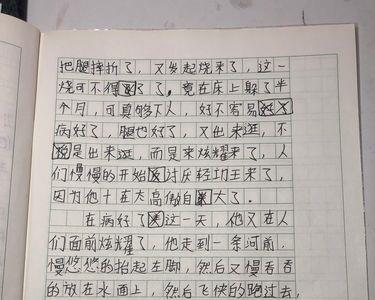 把腿摔折了，又发起烧来了，这一
烧可不得了了，竟在床上躲了半
个月，可真够下人，好不容易
病好了，腿也好了，又出来逛，不
是出来逛，而是来炫耀来了，人
们慢慢的开始讨厌轻功王来了，
因为他十在太高傲自大了。
在病好了这一天，他又在人
们面前炫耀了，他走到一条河前，
慢悠悠的抬起左脚，然后又慢吞吞
的放在水面上，然后飞快的跑过去，